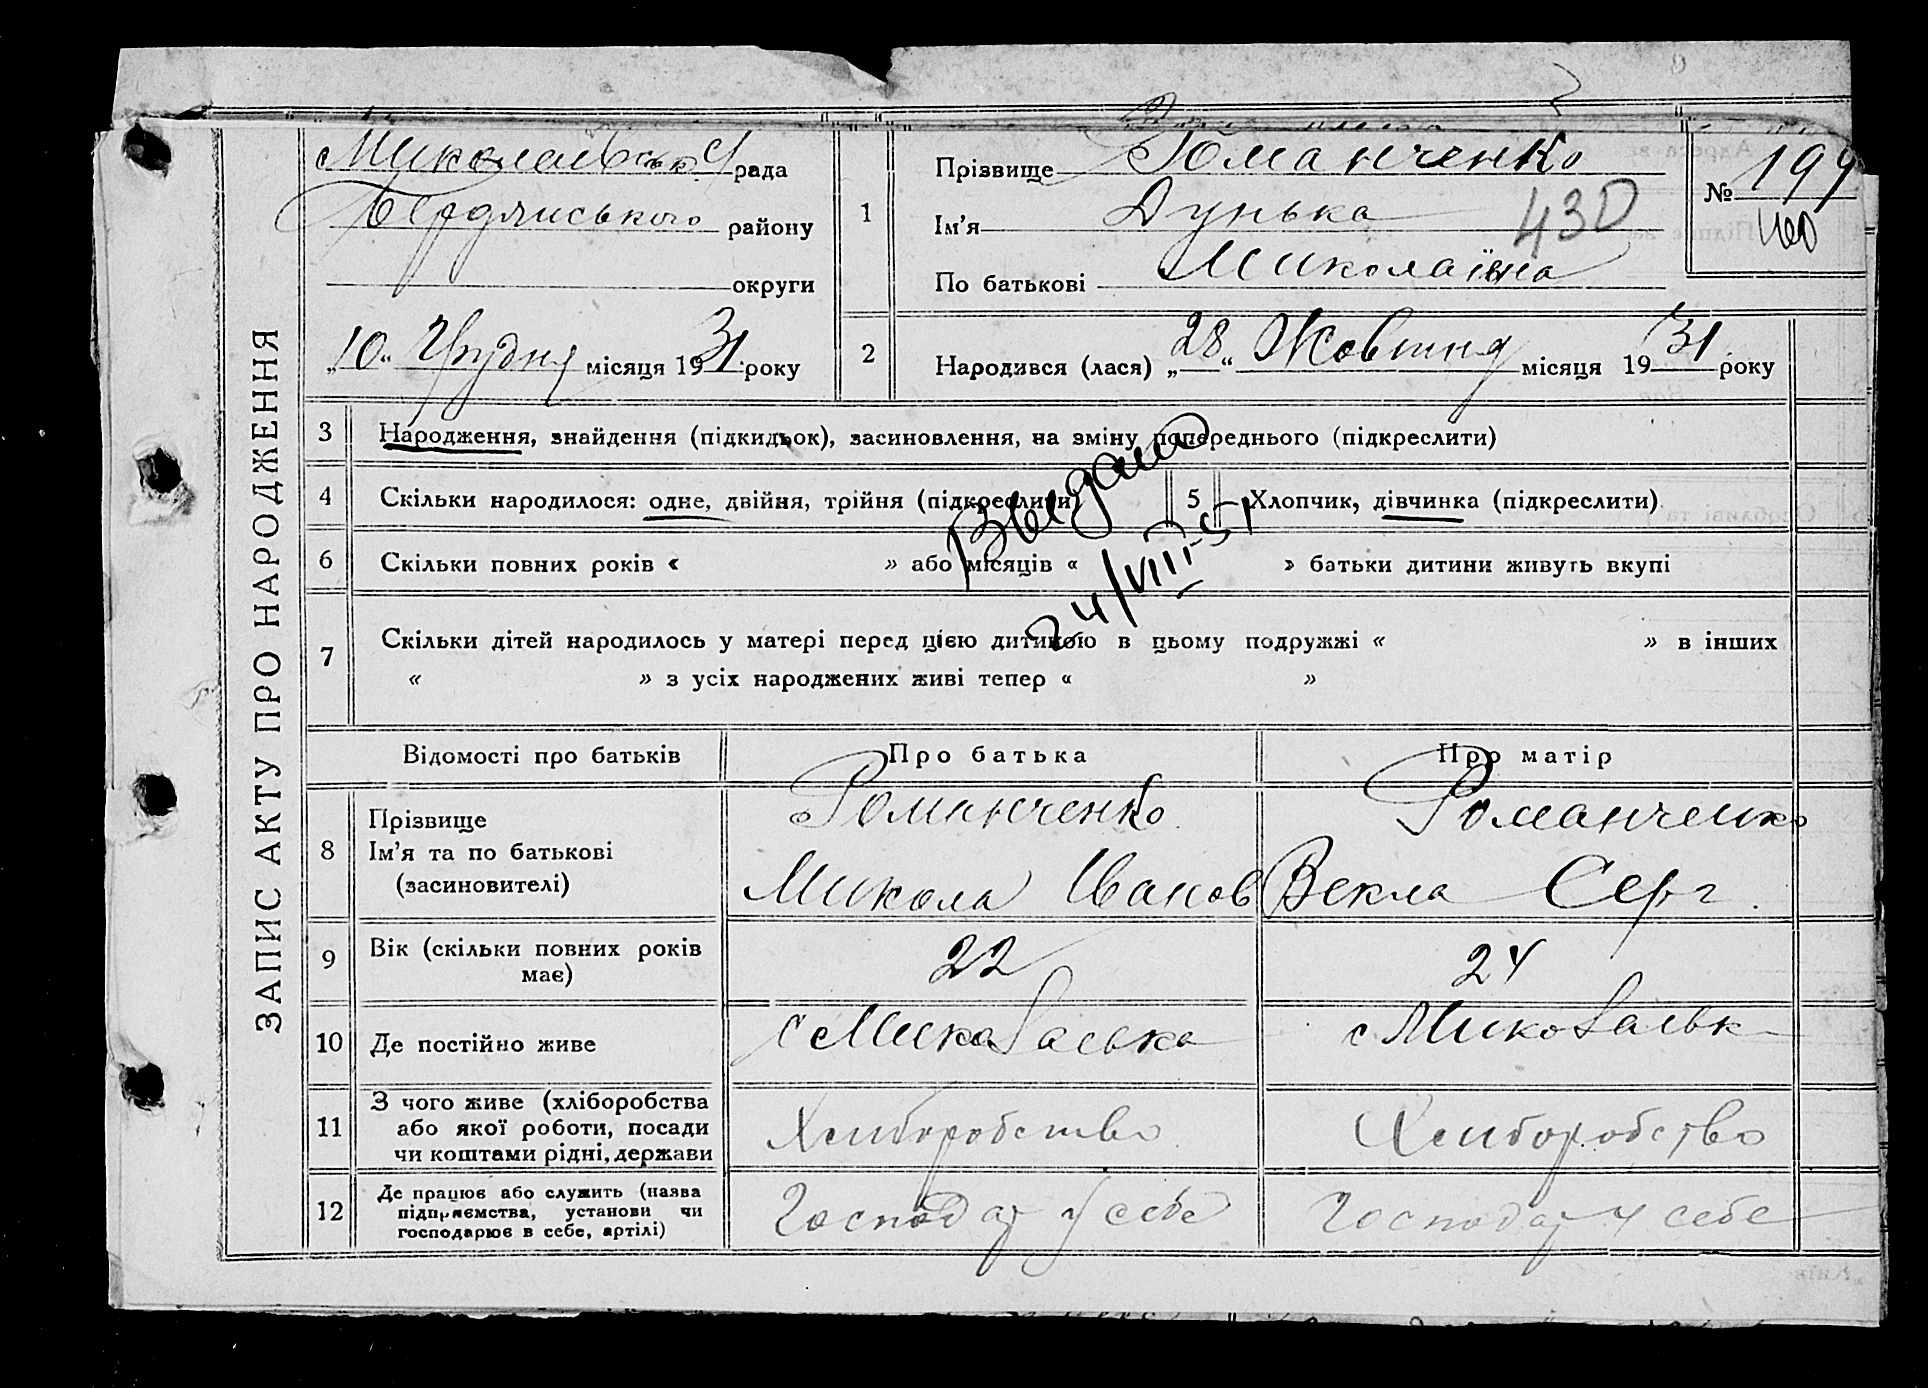 ЗАПИС АКТУ ПРО НАРОДЖЕННЯ
Миколаївськ рада
Бердянського району
округи
„10“ Грудня місяця 1931 року
1
Прізвище Романченко
Ім'я Дунька
По батькові Миколаївна
430
№ 199
2
Народився (лася) „28“ Жовтня місяця 1931 року
3 Народження, знайдення (підкидьок), засиновлення, на зміну попереднього (підкреслити)
4 Скільки народилося: одне, двійня, трійня (підкреслити) 5 Хлопчик, дівчинка (підкреслити)
Выдано
24/VIII-51
6 Скільки повних років « » або місяців « » батьки дитини живуть вкупі
7 Скільки дітей народилось у матері перед цією дитиною в цьому подружжі « » в інших
« » з усіх народжених живі тепер « »
Відомості про батьків Про батька Про матір
8 Прізвище
Ім'я та по батькові
(засиновителі)
Романченко Романченко
Микола Іванов Векла Серг.
9 Вік (скільки повних років
має)
22 24
10 Де постійно живе
11 З чого живе (хліборобства
або якої роботи, посади
чи коштами рідні, держави
Хлиборобство Хлиборобство
12 Де працює або служить (назва
підприємства, установи чи
господарює в себе, артілі)
Господар у себе Господар у себе